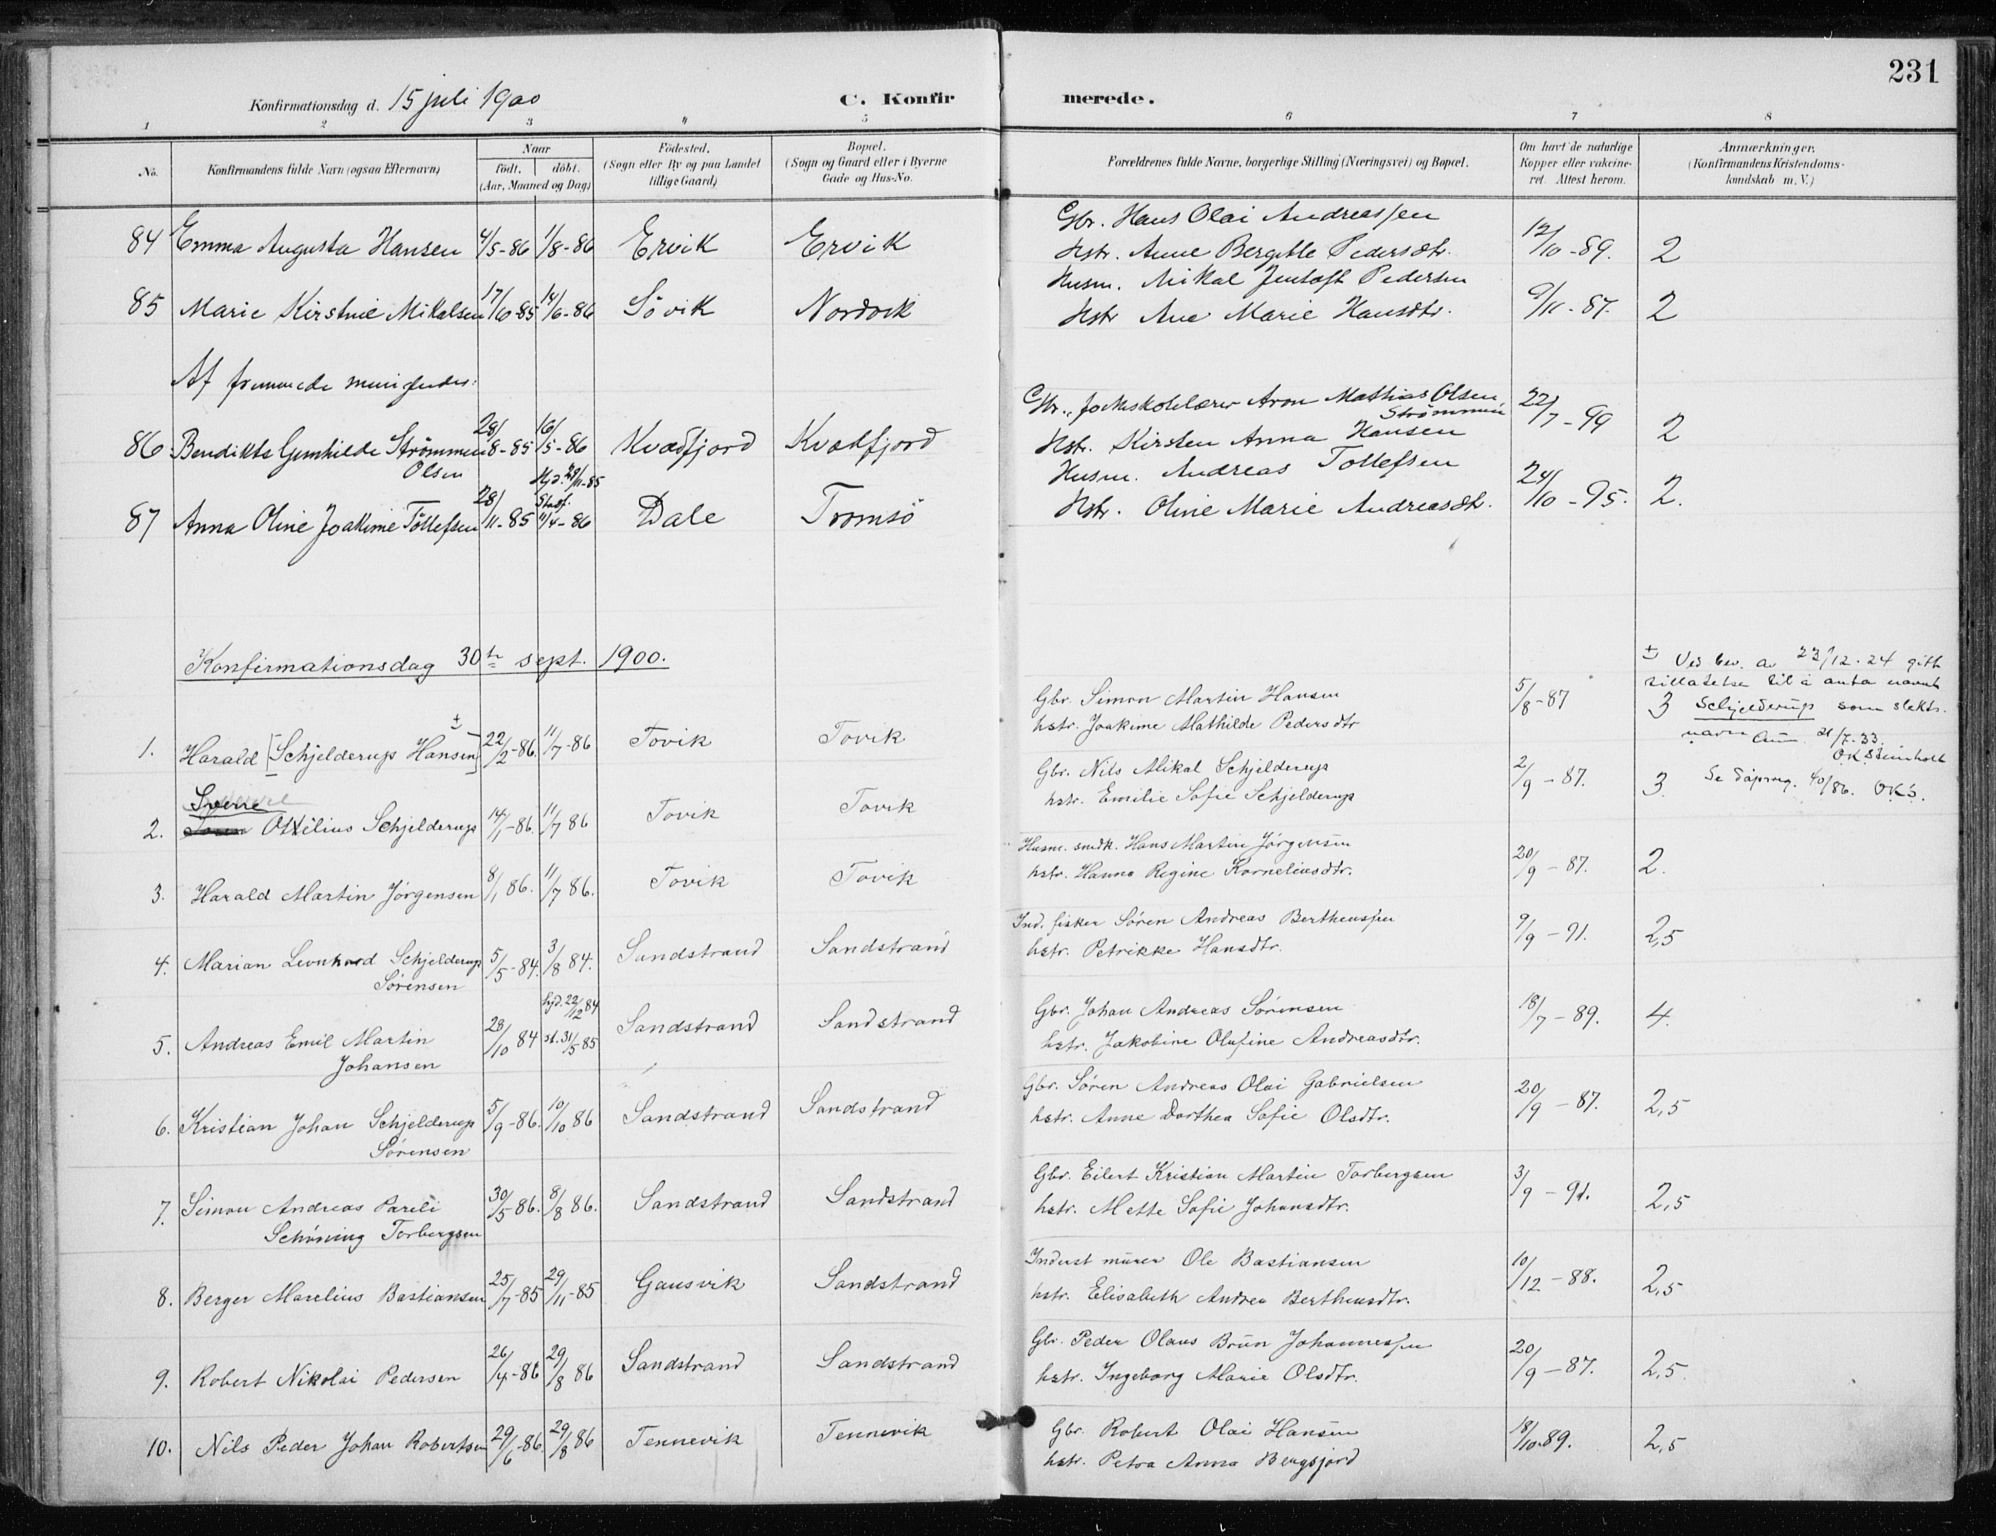 231
Konfirmationsdag d. 15 juli 1900 C. Konfirmerede.
1 2 3 4 5 6 7 8
No.
Konfirmandens fulde Navn (ogsaa Efternavn)
Naar
født, døbt.
(Aar, Maaned og Dag)
Fødested.
(Sogn eller By og paa Landet
tillige Gaard)
Bopæl.
(Sogn og Gaard eller i Byerne
Gade og Hus-No.
Forældrenes fulde Navne, borgerlige Stilling (Næringsvei) og Bopæl.
Om havt de naturlige
Kopper eller vakcine-
ret. Attest herom.
Anmærkninger.
(Konfirmandens Kristendoms-
kundskab m. V.)
Gbr. Hans Olai Andreassen
84 Emma Augusta Hansen 4/5-86 1/8-86 Ervik Ervik Hstr. Anne Bergitte Pedersdtr. 12/10-89. 2
Husm. Mikal Jentoft Pedersen
85 Marie Kirstine Mikalsen 17/10-85 14/6-86 Søvik Nordvik Hstr Ane Marie Hansdtr. 9/11-87. 2
Af fremmede menigheder:
Gbr., folkeskolelærer Aron Mathias Olsen
Strømmen
86 Bendikte Gunhilde Strømmen 28/8-85 16/5-86 Kvædfjord Kvædfjord Hstr. Kirsten Anna Hansen 22/7-99 2
Olsen
Hjd. 28/11-85
Husm. Andreas Tollefsen
Stadf.
87 Anna Oline Joakime Tollefsen 28/11-85 11/4-86 Dale Tromsø Hstr. Oline Marie Andreasdtr. 24/10-95. 2.
Konfirmationsdag 30te sept. 1900.
± Ved bev. av 23/12-24 gitt
tillatelse til å anta navnet
Schjelderup som slekts-
navn 21/7-33.
Gbr. Simon Martin Hansen
1. Harald [Schjelderup Hansen] ± 22/2-86. 11/7-86 Tovik Tovik hstr. Joakime Mathilde Pedersdtr 5/8-87 3
Gbr. Nils Mikal Schjelderup
Sverre
2. Søren Ottilius Schjelderup 14/1-86. 11/7 86 Tovik Tovik hstr. Emilie Sofie Schjelderup 2/9-87. 3. Se dåpsreg. 40/86. OKS.
Husm. smdk. Hans Martin Jørgensen
3. Harald Martin Jørgensen 8/1 86. 11/7 86. Tovik Tovik hstr. Hanna Regine Korneliusdtr. 20/9-87. 2.
Ind. fisker Søren Andreas Berthensen
4. Marian Leonhard Schjelderup 5/5-84. 3/8 84. Sandstrand Sandstrand hstr. Petrikke Hansdtr. 9/9-91. 2,5
Sørensen
hjd. 22/12 84
Gbr. Johan Andreas Sørensen
5. Andreas Emil Martin 28/10 84 st. 31/5 85 Sandstrand Sandstrand hstr. Jakobine Olufine Andreasdtr. 18/7-89. 4.
Johansen
Gbr. Søren Andreas Olai Gabrielsen
6. Kristian Johan Schjelderup 5/9-86. 10/10 86 Sandstrand Sandstrand hstr. Anne Dorthea Sofie Olsdtr. 20/9-87. 2,5
Sørensen
Gbr. Eilert Kristian Martin Torbergsen
7. Simon Andreas Pareli 30/5-86. 8/8 86. Sandstrand Sandstrand hstr. Mette Sofie Johansdtr. 3/9-91. 2,5
Schøning Torbergsen
Inderst murer Ole Bastiansen
8. Berger Marelius Bastiansen 25/7-85 29/11-85 Gausvik Sandstrand hstr. Elisabeth Andrea Berthensdtr. 10/12-88. 2,5
Gbr. Peder Olaus Brun Johannessen
9. Robert Nikolai Pedersen 26/4-86 29/8 86 Sandstrand Sandstrand hstr. Ingeborg Marie Olsdtr. 20/9-87. 2,5.
Gbr. Robert Olai Hansen
10. Nils Peder Johan Robertsen 29/6-86. 29/8 86 Tennevik Tennevik hstr. Petra Anna Bergsjord 18/10-89. 2,5